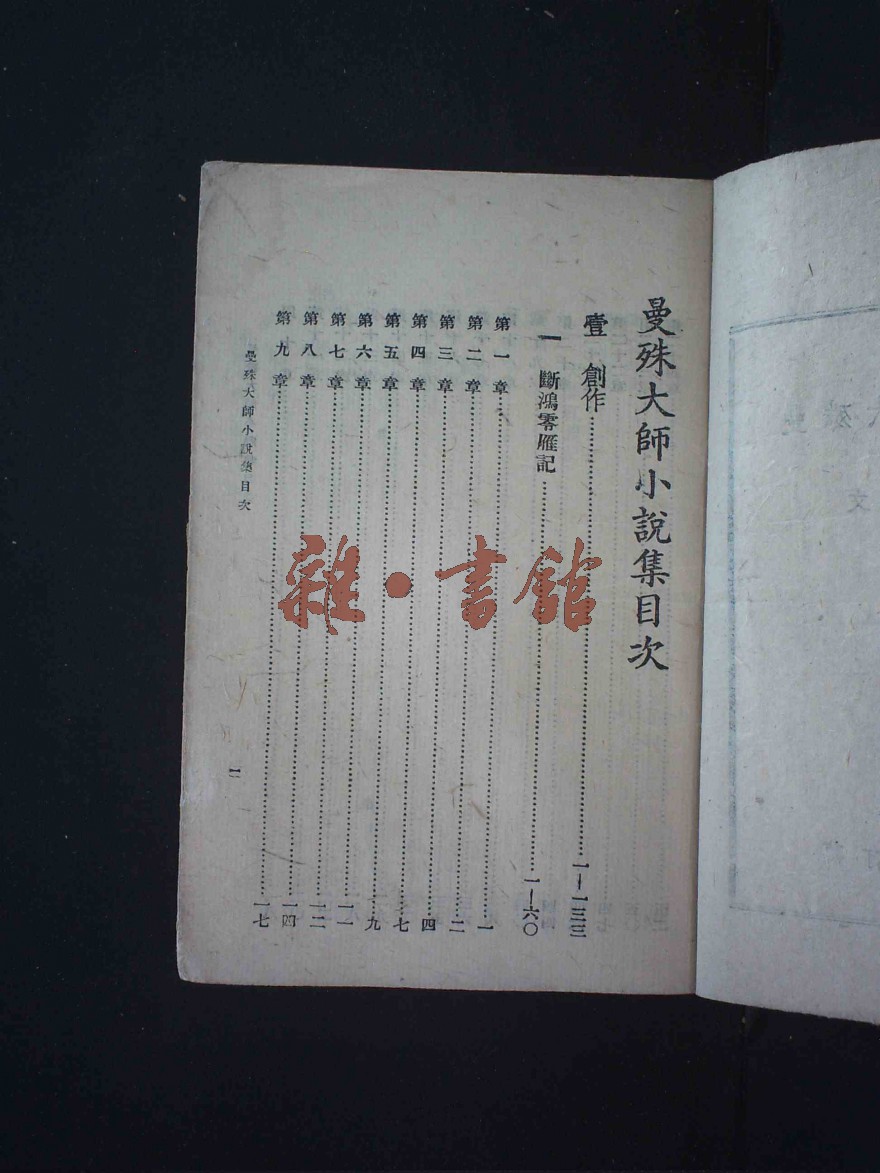 曼殊大師小說集目次
壹 創作……一—一三三
一 斷鴻零雁記……一—六〇
第一章……一
第二章……二
第三章……四
第四章……七
第五章……九
第六章……一一
第七章……一二
第八章……一四
第九章……一七
曼殊大師小說集目次
一
雜·書館
文